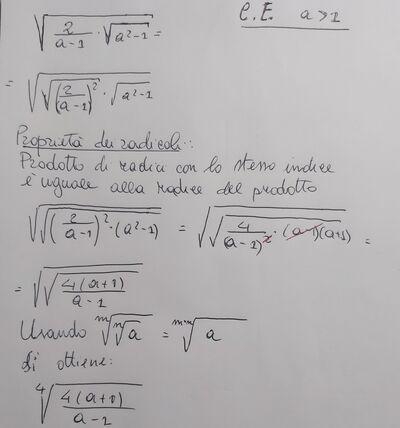 C.E. a>1
√(2/(a-1) · √(a²-1)) =
= √(√(2/(a-1))² · √(a²-1))
Proprietà dei radicali::
Prodotto di radici con lo stesso indice
è uguale alla radice del prodotto
√√((2/(a-1))² · (a²-1)) = √√(4/(a-1)² · (a-1)(a+1)) =
= √√(4(a+1)/(a-1))
Usando ᵐ√ⁿ√a = ᵐⁿ√a
Si ottiene:
⁴√(4(a+1)/(a-1))